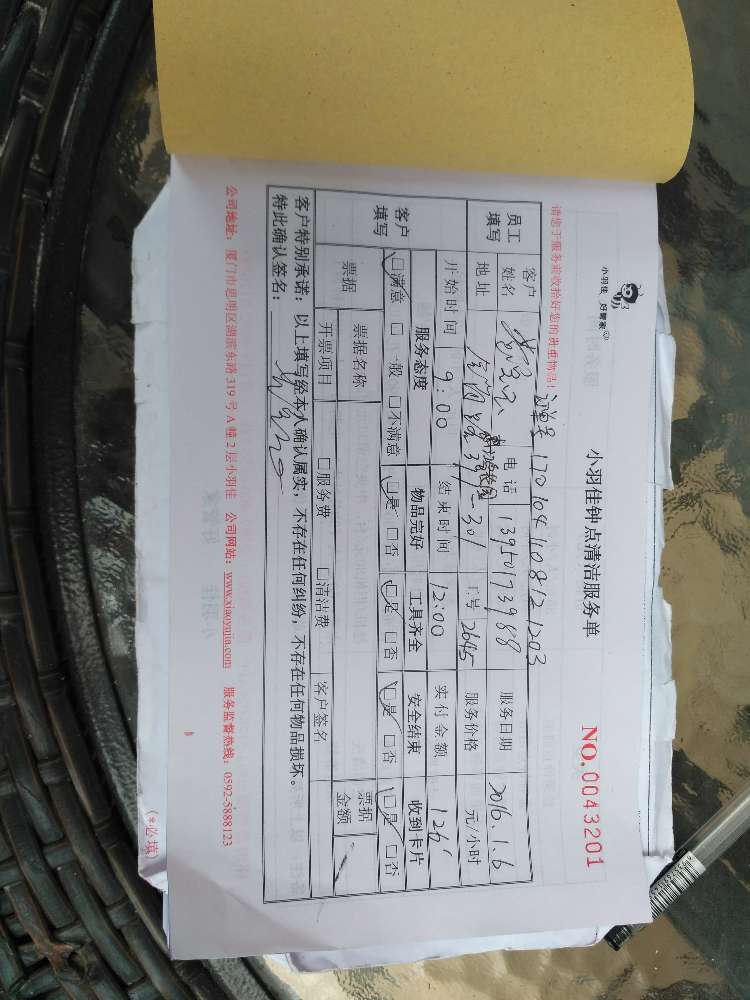 小羽佳 好管家
小羽佳钟点清洁服务单
NO.0043201
请您于服务前收拾好您的贵重物品!
订单号 170104408121203
员工填写 客户姓名 电话 13950173988 服务日期 2016.1.6
地址 397-301 工号 2645 服务价格 元/小时
开始时间 9:00 结束时间 12:00 实付金额 126
客户填写 服务态度 物品完好 工具齐全 安全结束 收到卡片
□满意 □一般 □不满意 □是 □否 □是 □否 □是 □否 □是 □否
票据 票据名称 票据金额
开票项目 □服务费 □清洁费 客户签名
客户特别承诺:以上填写经本人确认属实,不存在任何纠纷,不存在任何物品损坏。
特此确认签名:
公司地址:厦门市思明区湖滨东路319号A幢2层小羽佳 公司网站:www.xiaoyujia.com 服务监督热线:0592-5888123
(*必填)